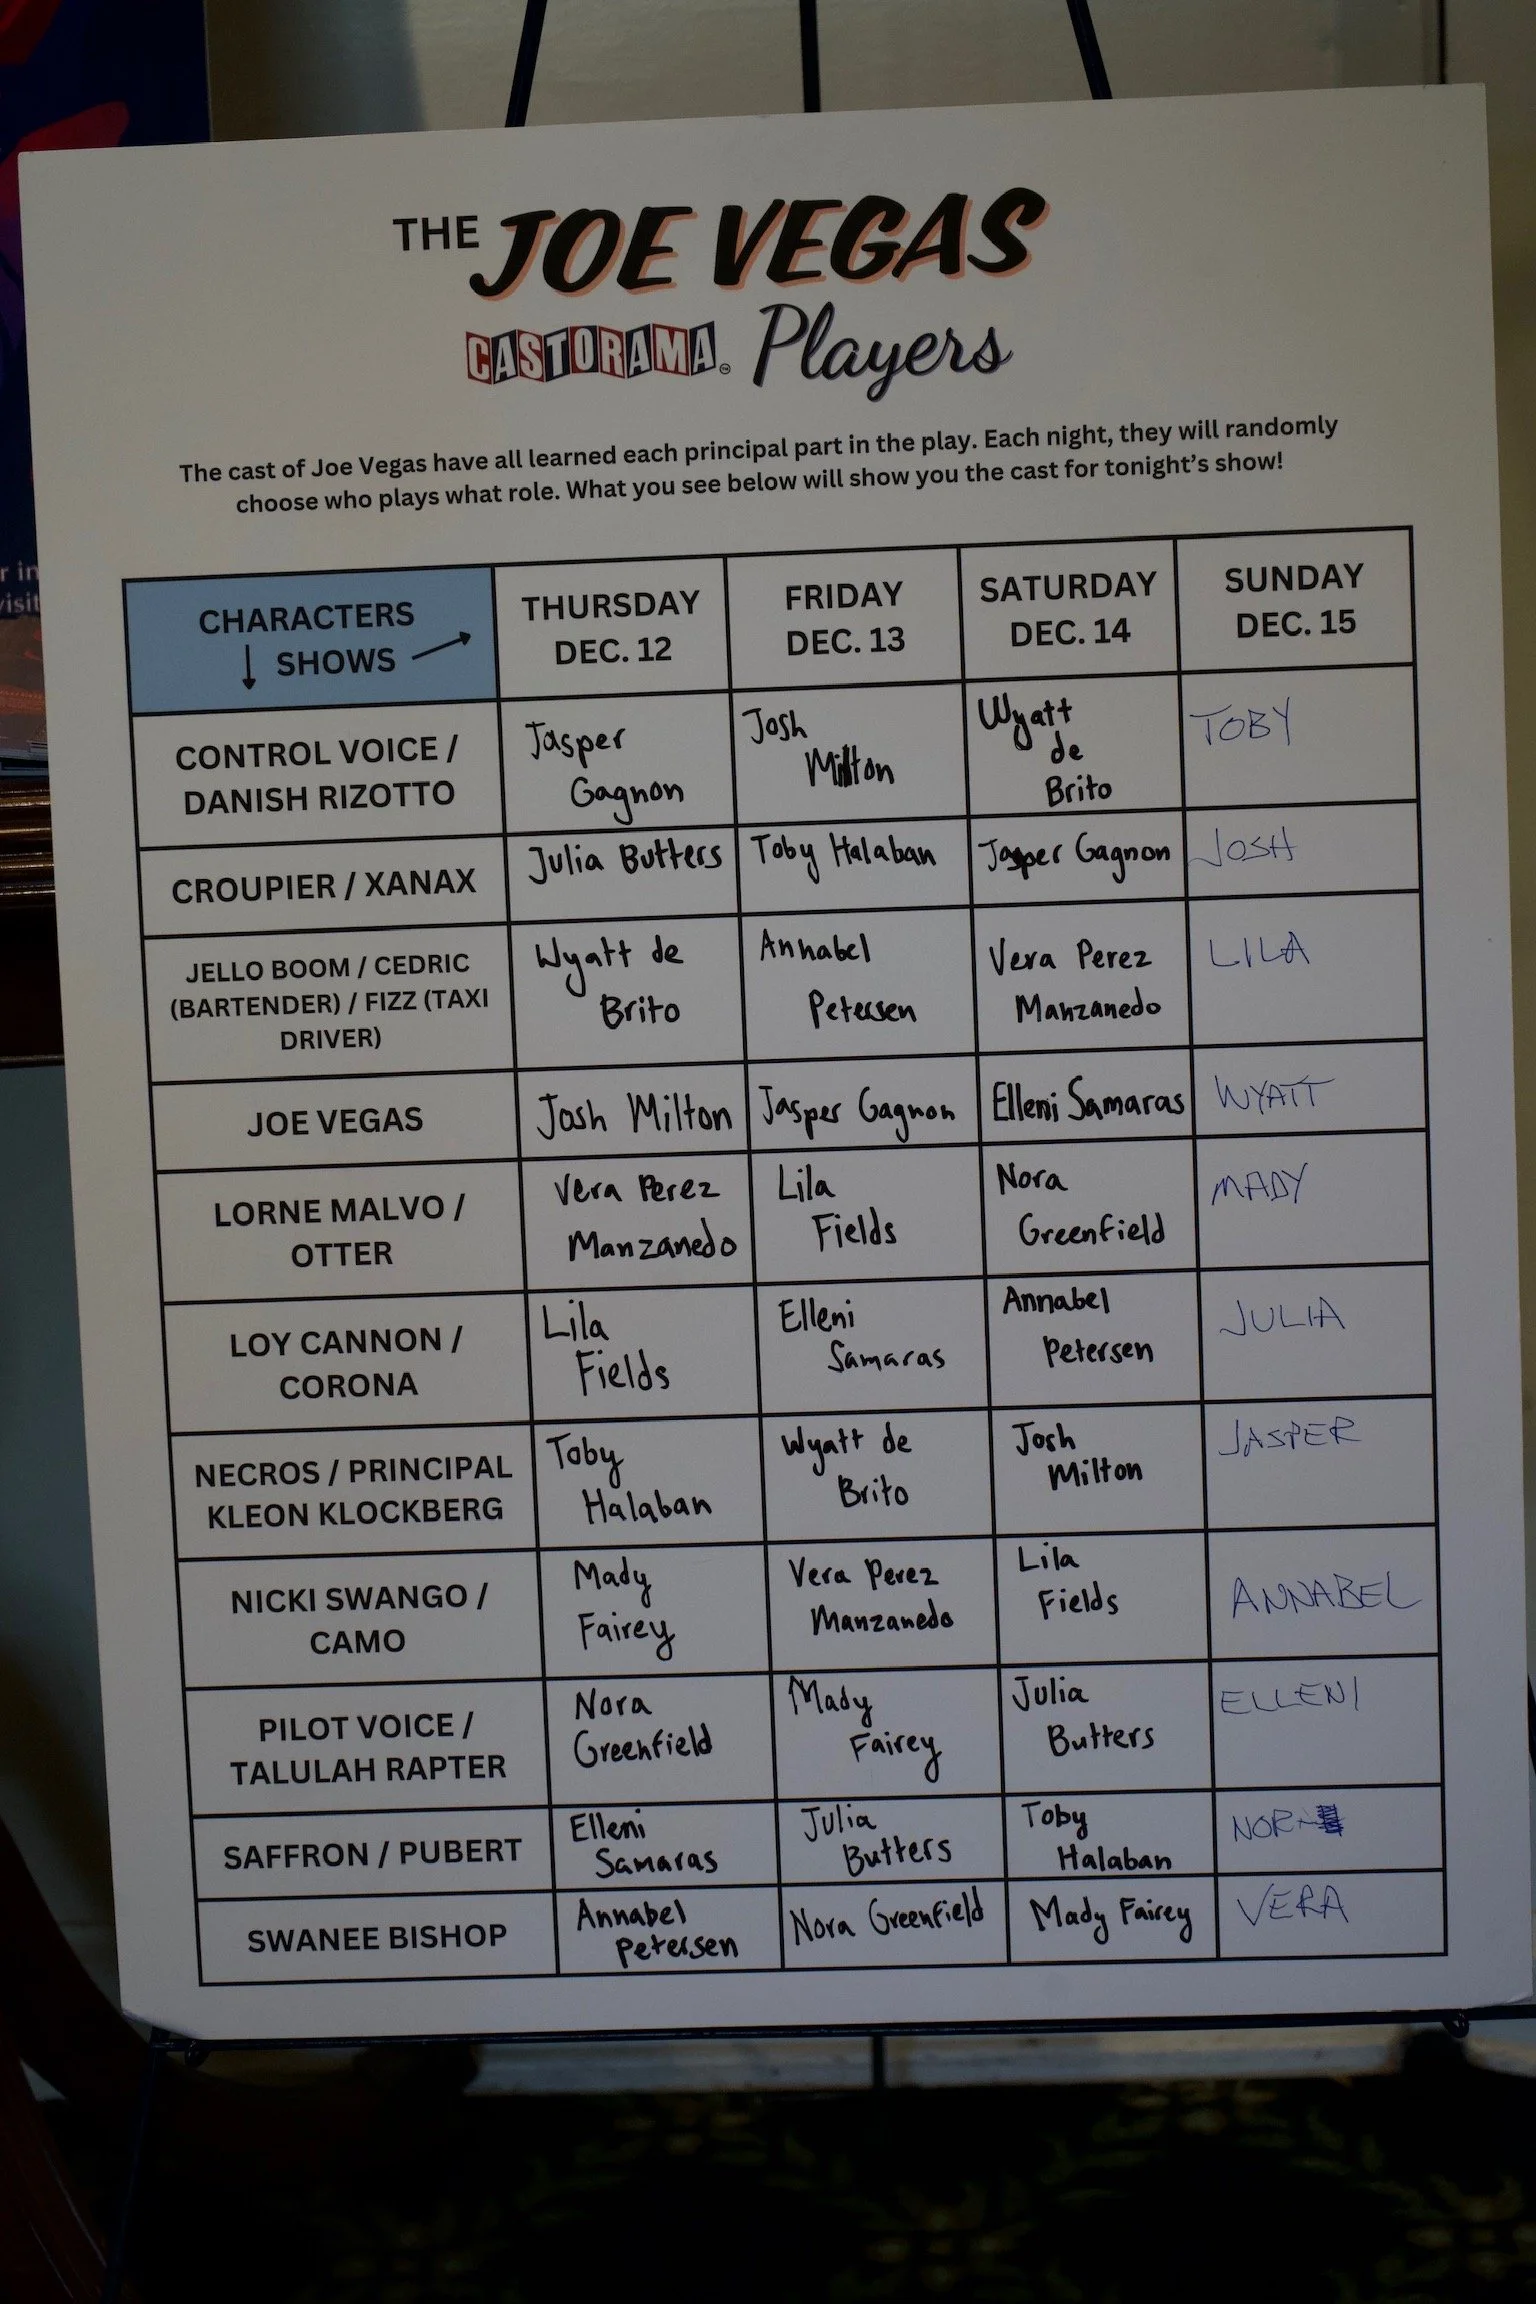 THE JOE VEGAS
CASTORAMA Players
The cast of Joe Vegas have all learned each principal part in the play. Each night, they will randomly
choose who plays what role. What you see below will show you the cast for tonight's show!
CHARACTERS
↓ SHOWS →
THURSDAY
DEC. 12
FRIDAY
DEC. 13
SATURDAY
DEC. 14
SUNDAY
DEC. 15
CONTROL VOICE /
DANISH RIZOTTO
Jasper
Gagnon
Josh
Milton
Wyatt
de
Brito
TOBY
CROUPIER / XANAX
Julia Butters
Toby Halaban
Jasper Gagnon
JOSH
JELLO BOOM / CEDRIC
(BARTENDER) / FIZZ (TAXI
DRIVER)
Wyatt de
Brito
Annabel
Petersen
Vera Perez
Manzanedo
LILA
JOE VEGAS
Josh Milton
Jasper Gagnon
Elleni Samaras
WYATT
LORNE MALVO /
OTTER
Vera Perez
Manzanedo
Lila
Fields
Nora
Greenfield
MADY
LOY CANNON /
CORONA
Lila
Fields
Elleni
Samaras
Annabel
Petersen
JULIA
NECROS / PRINCIPAL
KLEON KLOCKBERG
Toby
Halaban
Wyatt de
Brito
Josh
Milton
JASPER
NICKI SWANGO /
CAMO
Mady
Fairey
Vera Perez
Manzanedo
Lila
Fields
ANNABEL
PILOT VOICE /
TALULAH RAPTER
Nora
Greenfield
Mady
Fairey
Julia
Butters
ELLENI
SAFFRON / PUBERT
Elleni
Samaras
Julia
Butters
Toby
Halaban
SWANEE BISHOP
Annabel
Petersen
Nora Greenfield
Mady Fairey
VERA